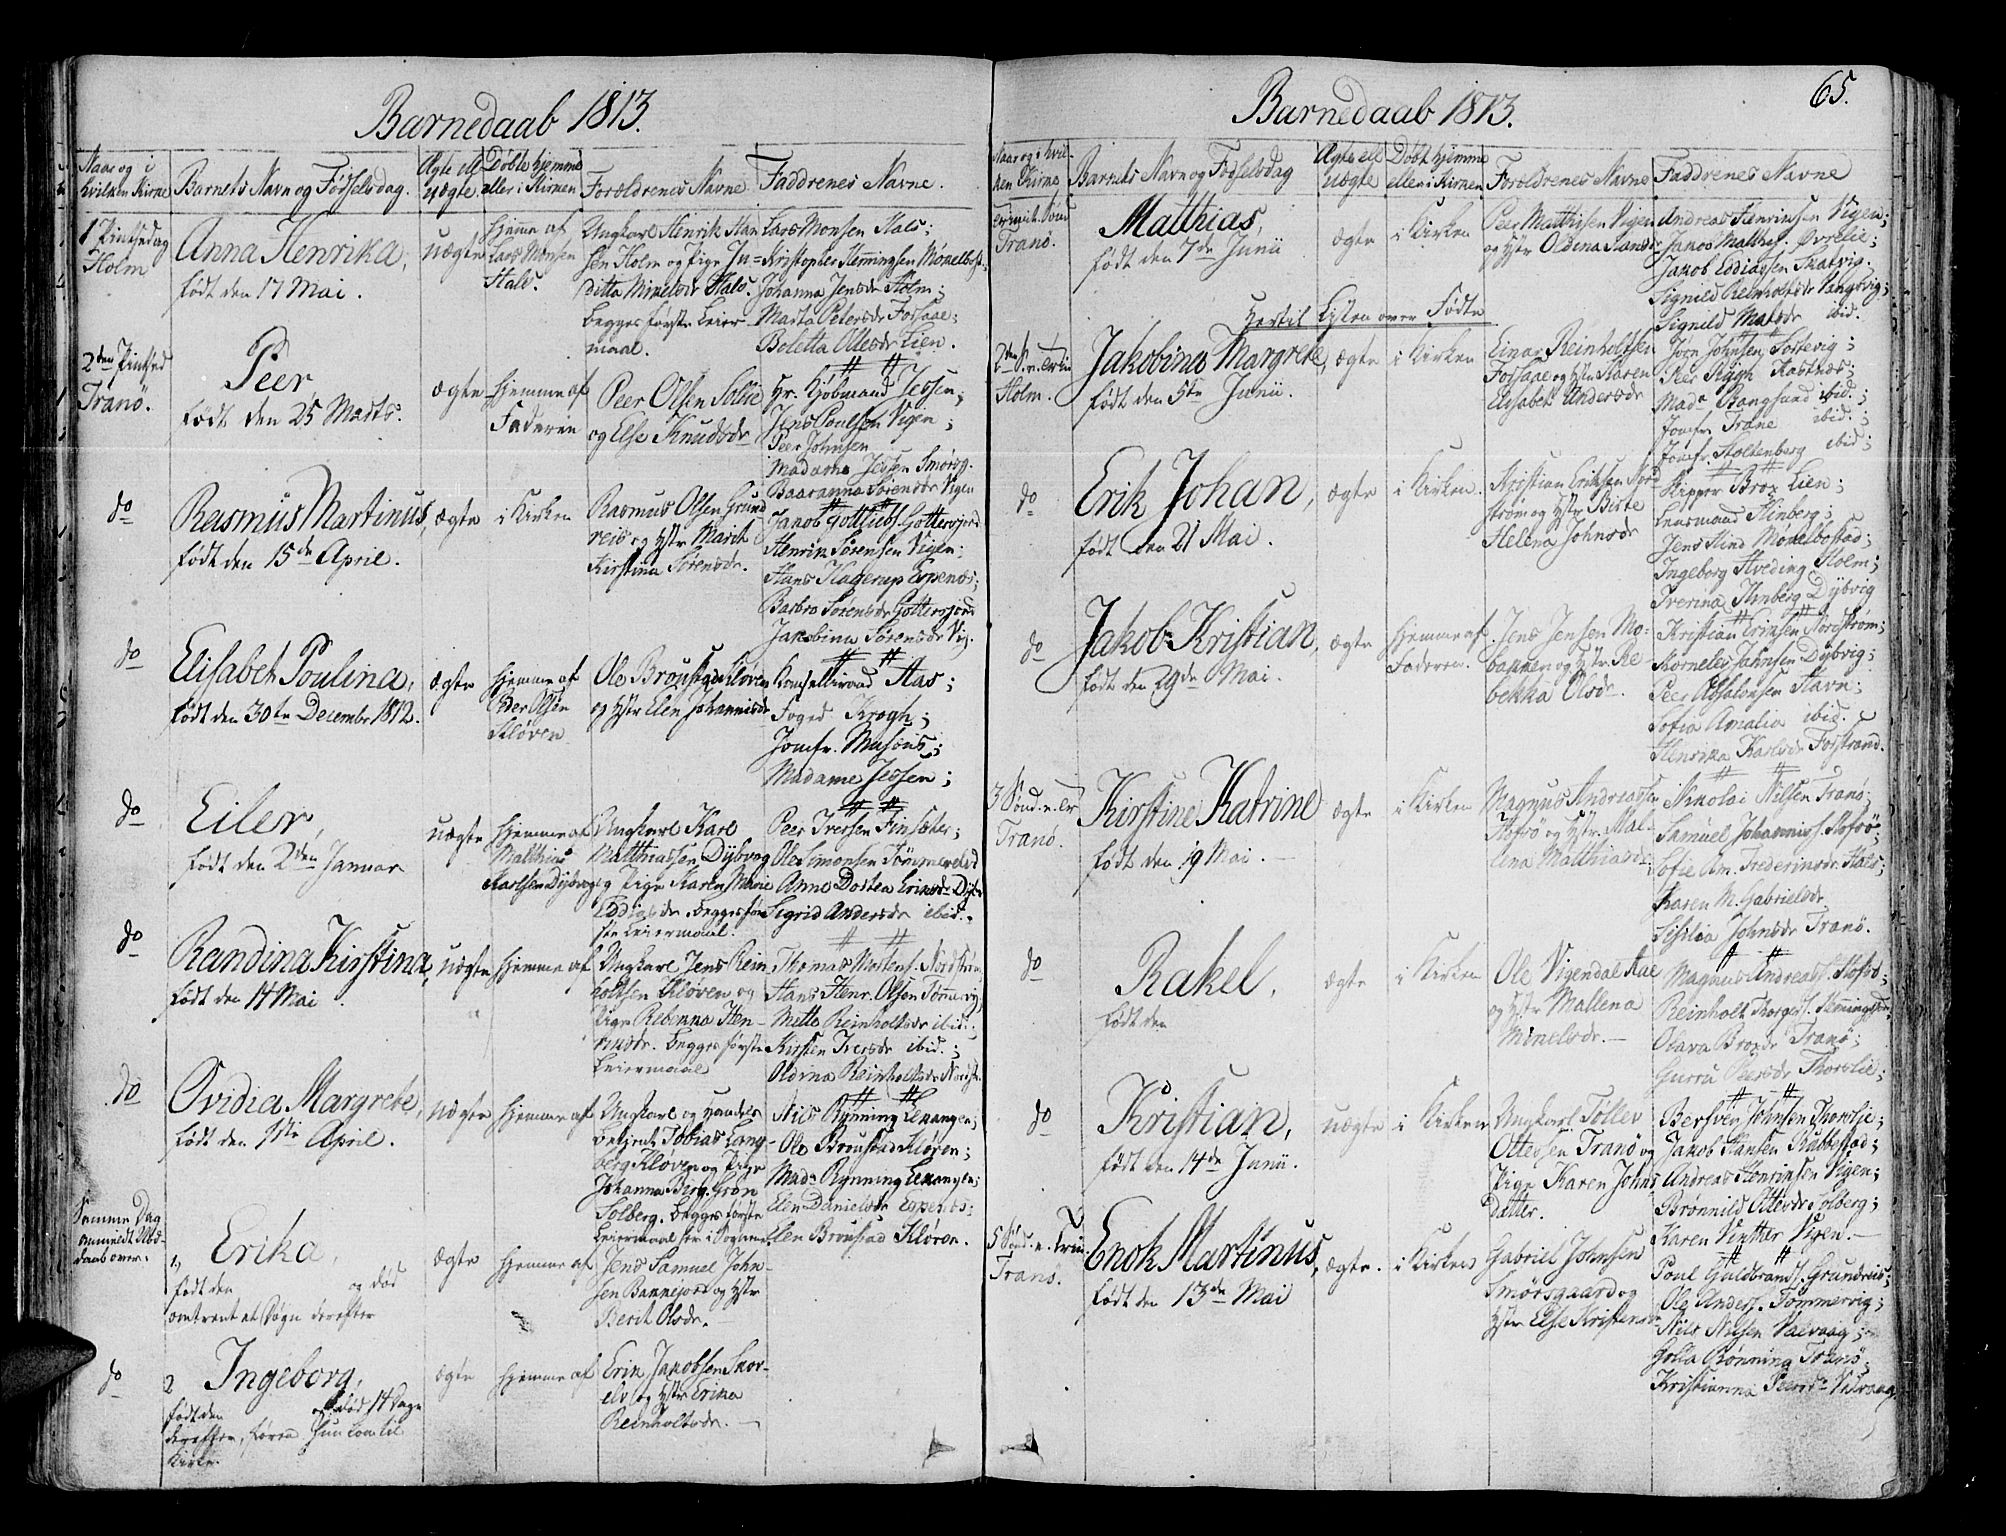 Barnedaab 1813.
Naar og i hvilken Kirke
Barnets Navn og Fødselsdag.
Ægte ell uægte.
Døbt hjemme eller i Kirken
Forældrenes Navne
Faddrenes Navne.
1 Pintsedag Holm
Anna Henrika,
født den 17 Mai.
uægte
hjemme af
Lars Monsen
Hals.
Ungkarl Henrik Han
sen Holm og Pige Ju=
ditta Mikelsdr Hals.
begges første Leier
maal.
Lars Monsen Hals;
Kristopher Henningsen
Johanna Jensdr Holm;
Marta Petersdr Forsaae;
Boletta Ottesdr Lien.
2den Pintsed
Tranö.
Peer
født den 25 Marts.
ægte
hjemme af
Faderen
Peer Olsen Sollie
og Else Knudsdr
Hr. Kjøbmand Jessen;
Jens Poulsen Vigen;
Peer Johnsen
Madame Jessen
Baaranna Sørensdr Vigen
do
Rasmus Martinus,
født den 15de April.
ægte
i Kirken
Rasmus Olsen Grund
reis og Hstr Marit
Kirstina Sørensdr.
Jakob Gottliebs.
Henrik Sørensen Vigen;
Hans Hagerup Espenæs;
Barbro Sørensdr
Jakobina Sørensdr Vig.
do
Elisabet Poulina,
født den 30te Decembr 1812.
ægte
hjemme af
Peer Olsön
Kløven
Ole Brousted Kløven
og Hstr Elen Johannisdr
Konsellieraad Aas;
Foged Krogh;
Jomfr. Musöus;
Madame Jessen;
do
Eiler,
født den 2den Januar
uægte
hjemme af
Matthias
Karlsen Dybvog
Ungkarl Karl
Matthiassen Dybvog
og Pige Karen Marie
Eddiasdr. begges før
ste Leiermaal.
Peer Iversen Finsæter;
Ole Simonsen
Anne Dortea Eriksdr
Sigrid Andersdr ibid.
do
Randina Kirstina,
født den 14 Mai
uægte
hjemme af
Ungkarl Jens Rein
holtsen Kløven og
Pige Rebekka Hen
riksdr. begges første
Leiermaal
Thomas Mortens. Nordstrøm
Hans Henr. Olsen
Mette Reinholtsdr ibid.
Kirsten Iversdr ibid.;
Aldina Reinholtsdr
do
Ovidia Margrete,
født den 1ste April.
uægte
hjemme af
Ungkarl og Handels
betjent Tobias Lang
berg Kløven og Pige
Johanna Berg. Grön
Solberg. begges første
Leiermaal her i Sognet.
Nils Rynning Lekangen;
Ole Broustad Kløven;
Mad. Rynning Lekangen;
Elen Danielsdr Espenes;
Elen Broustad Kløven.
Samme Dag
anmeldt
daab over:
1, Erika,
født den og död
omtrent et Døgn derefter
ægte
hjemme af
Jens Samuel John
sen Bannejord og Hstr
Berit Olsdr.
do
2 Ingeborg,
født den og död 14 Dage
derefter, førend hun kom til
Kirke.
ægte
hjemme af
Erik Jakobsen Skor
elv og Hstr Erika
Reinholtsdr.
Barnedaab 1813.
65.
Naar og i hvil-
ken Kirke
Barnets Navn og Fødselsdag
Ægte ell uægte
Døbt hjemme eller i Kirken
Forældrenes Navne
Faddrenes Navne
Trinit. Sönd
Tranö.
Matthias,
født den 7de Junii
ægte
i Kirken
Peer Matthisen Vigen
og Hstr Oldina Hansdr
Andreas Henriksen Vigen;
Jakob Matthes. Øvrelie;
Jakob Eddiassen Skatvig.
Signild Reinholtsdr Vangsvig;
Signild Matsdr ibid.
Hertil Lysten over Fødte
2den S. e. Trin
Holm.
Jakobina Margrete,
født den 5te Junii.
ægte
i Kirken
Einar Reinholtsen
Forsaae og Hstr Karen
Elisabet Andersdr
Jörn Johnsen Sortevig;
Peer Kastnæs;
Mada Bangsund ibid.;
Jomfr. Trane ibid.;
Jomfr. Stoltenberg ibid;
do
Erik Johan,
født den 21 Mai.
ægte
i Kirken.
Kristian Eriksen Nord
strøm og Hstr Birte
Helena Johnsdr
Skipper Brox Lien;
Lensmand Stinberg;
Jens Hind Mokelbostad;
Ingeborg Hveding Holm;
Iverina Stinberg Dybvig
do
Jakob Kristian,
født den 29de Mai.
ægte
hjemme af
Faderen.
Jens Jensen Mo-
bakken og Hstr Re
bekka Olsdr.
Kristian Eriksen Nordstrøm;
Kornelius Johnsen Dybvig;
Peer Absalonsen Havn;
Sofia Amalia ibid.
Henrika Karlsdr Forstrand.
3 Sönd. e. Tr
Tranö.
Kirstine Katrine
født den 19 Mai.
ægte
i Kirken
Magnus Andreassen
Stofsö og Hstr Mal-
lena Matthiasdr
Nikolai Nilsen Tranö;
Samuel Johanniss. Stofsö;
Sofie Am. Frederiksdr. Hals;
Karen M. Gabrielsdr.
Sisilia Johnsdr Tranö.
do
Rakel,
født den
ægte
i Kirken
Ole Vigendal Aae
og Hstr Mallena
Mikelsdr.
Magnus Andreass. Stofsö;
Reinholt
Olava Broxdr Tranö;
Gurru Peersdr Thorslie;
do
Kristian,
født den 14de Junii.
uægte
i Kirken
Ungkarl Tollev
Ottesen Tranö og
Pige Karen Johns
Datter.
Bersvein Johnsen
Jakob Hansen Rubbestad;
Andreas Henriksen Vigen;
Brønnild Ottesdr Solberg;
Karen Vinther Vigen.
5 Sönd. e. Trin
Tranö.
Enok Martinus,
født den 13de Mai
ægte.
i Kirken
Gabriel Johnsen
Smørsgaard og
Hstr Else Kristensdr
Poul Guldbrands. Grundreis;
Ole Anders. Tömmervig;
Nils Nilsen Valvaag;
Golla Rönning Tranö;
Kristianna Peersdr Valvaag